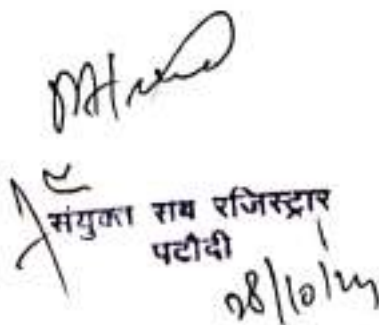 संयुक्त सब रजिस्ट्रार
पटौदी
28/10/24